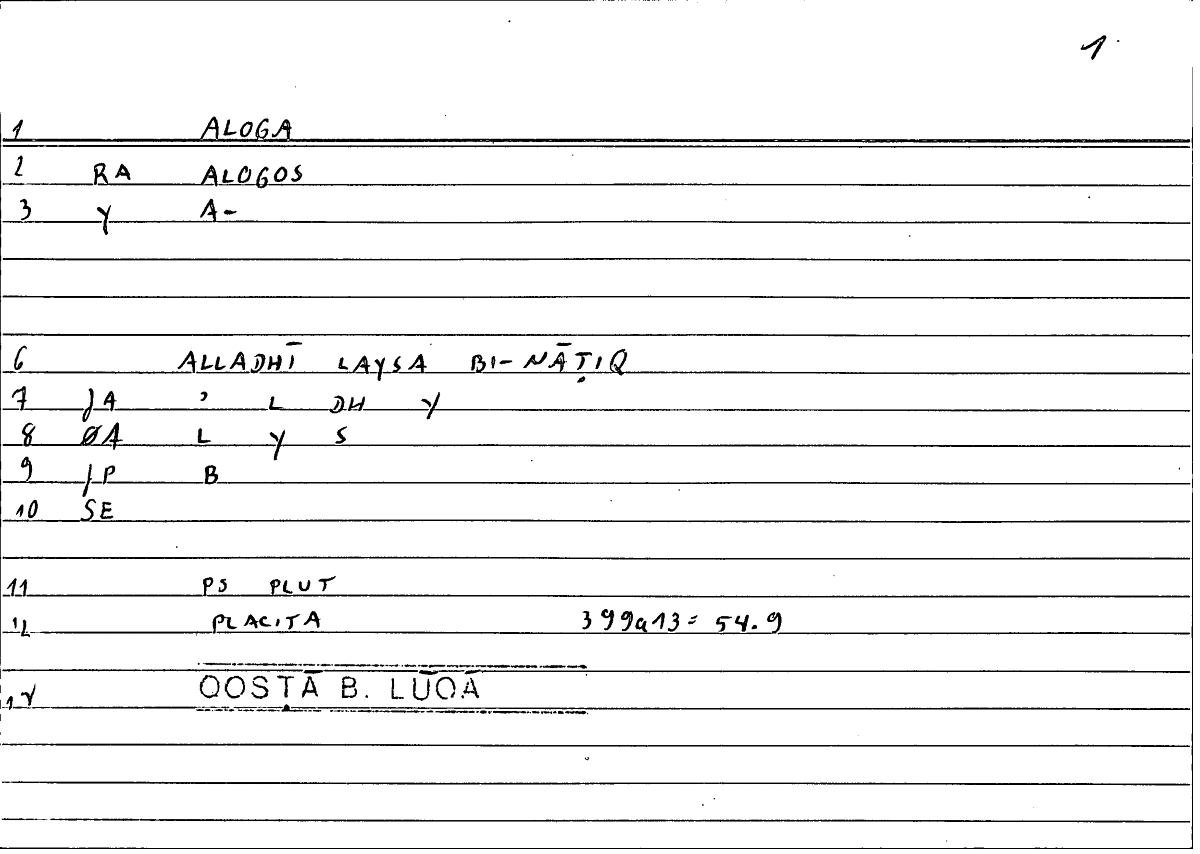 1
1 ALOGA
2 RA ALOGOS
3 Y A-
6 ALLADHĪ LAYSA BI-NĀṬIQ
7 JA ʾ L DH Y
8 ØA L Y S
9 JP B
10 SE
11 PS PLUT
12 PLACITA 399a13= 54.9
QOSṬĀ B. LŪQĀ